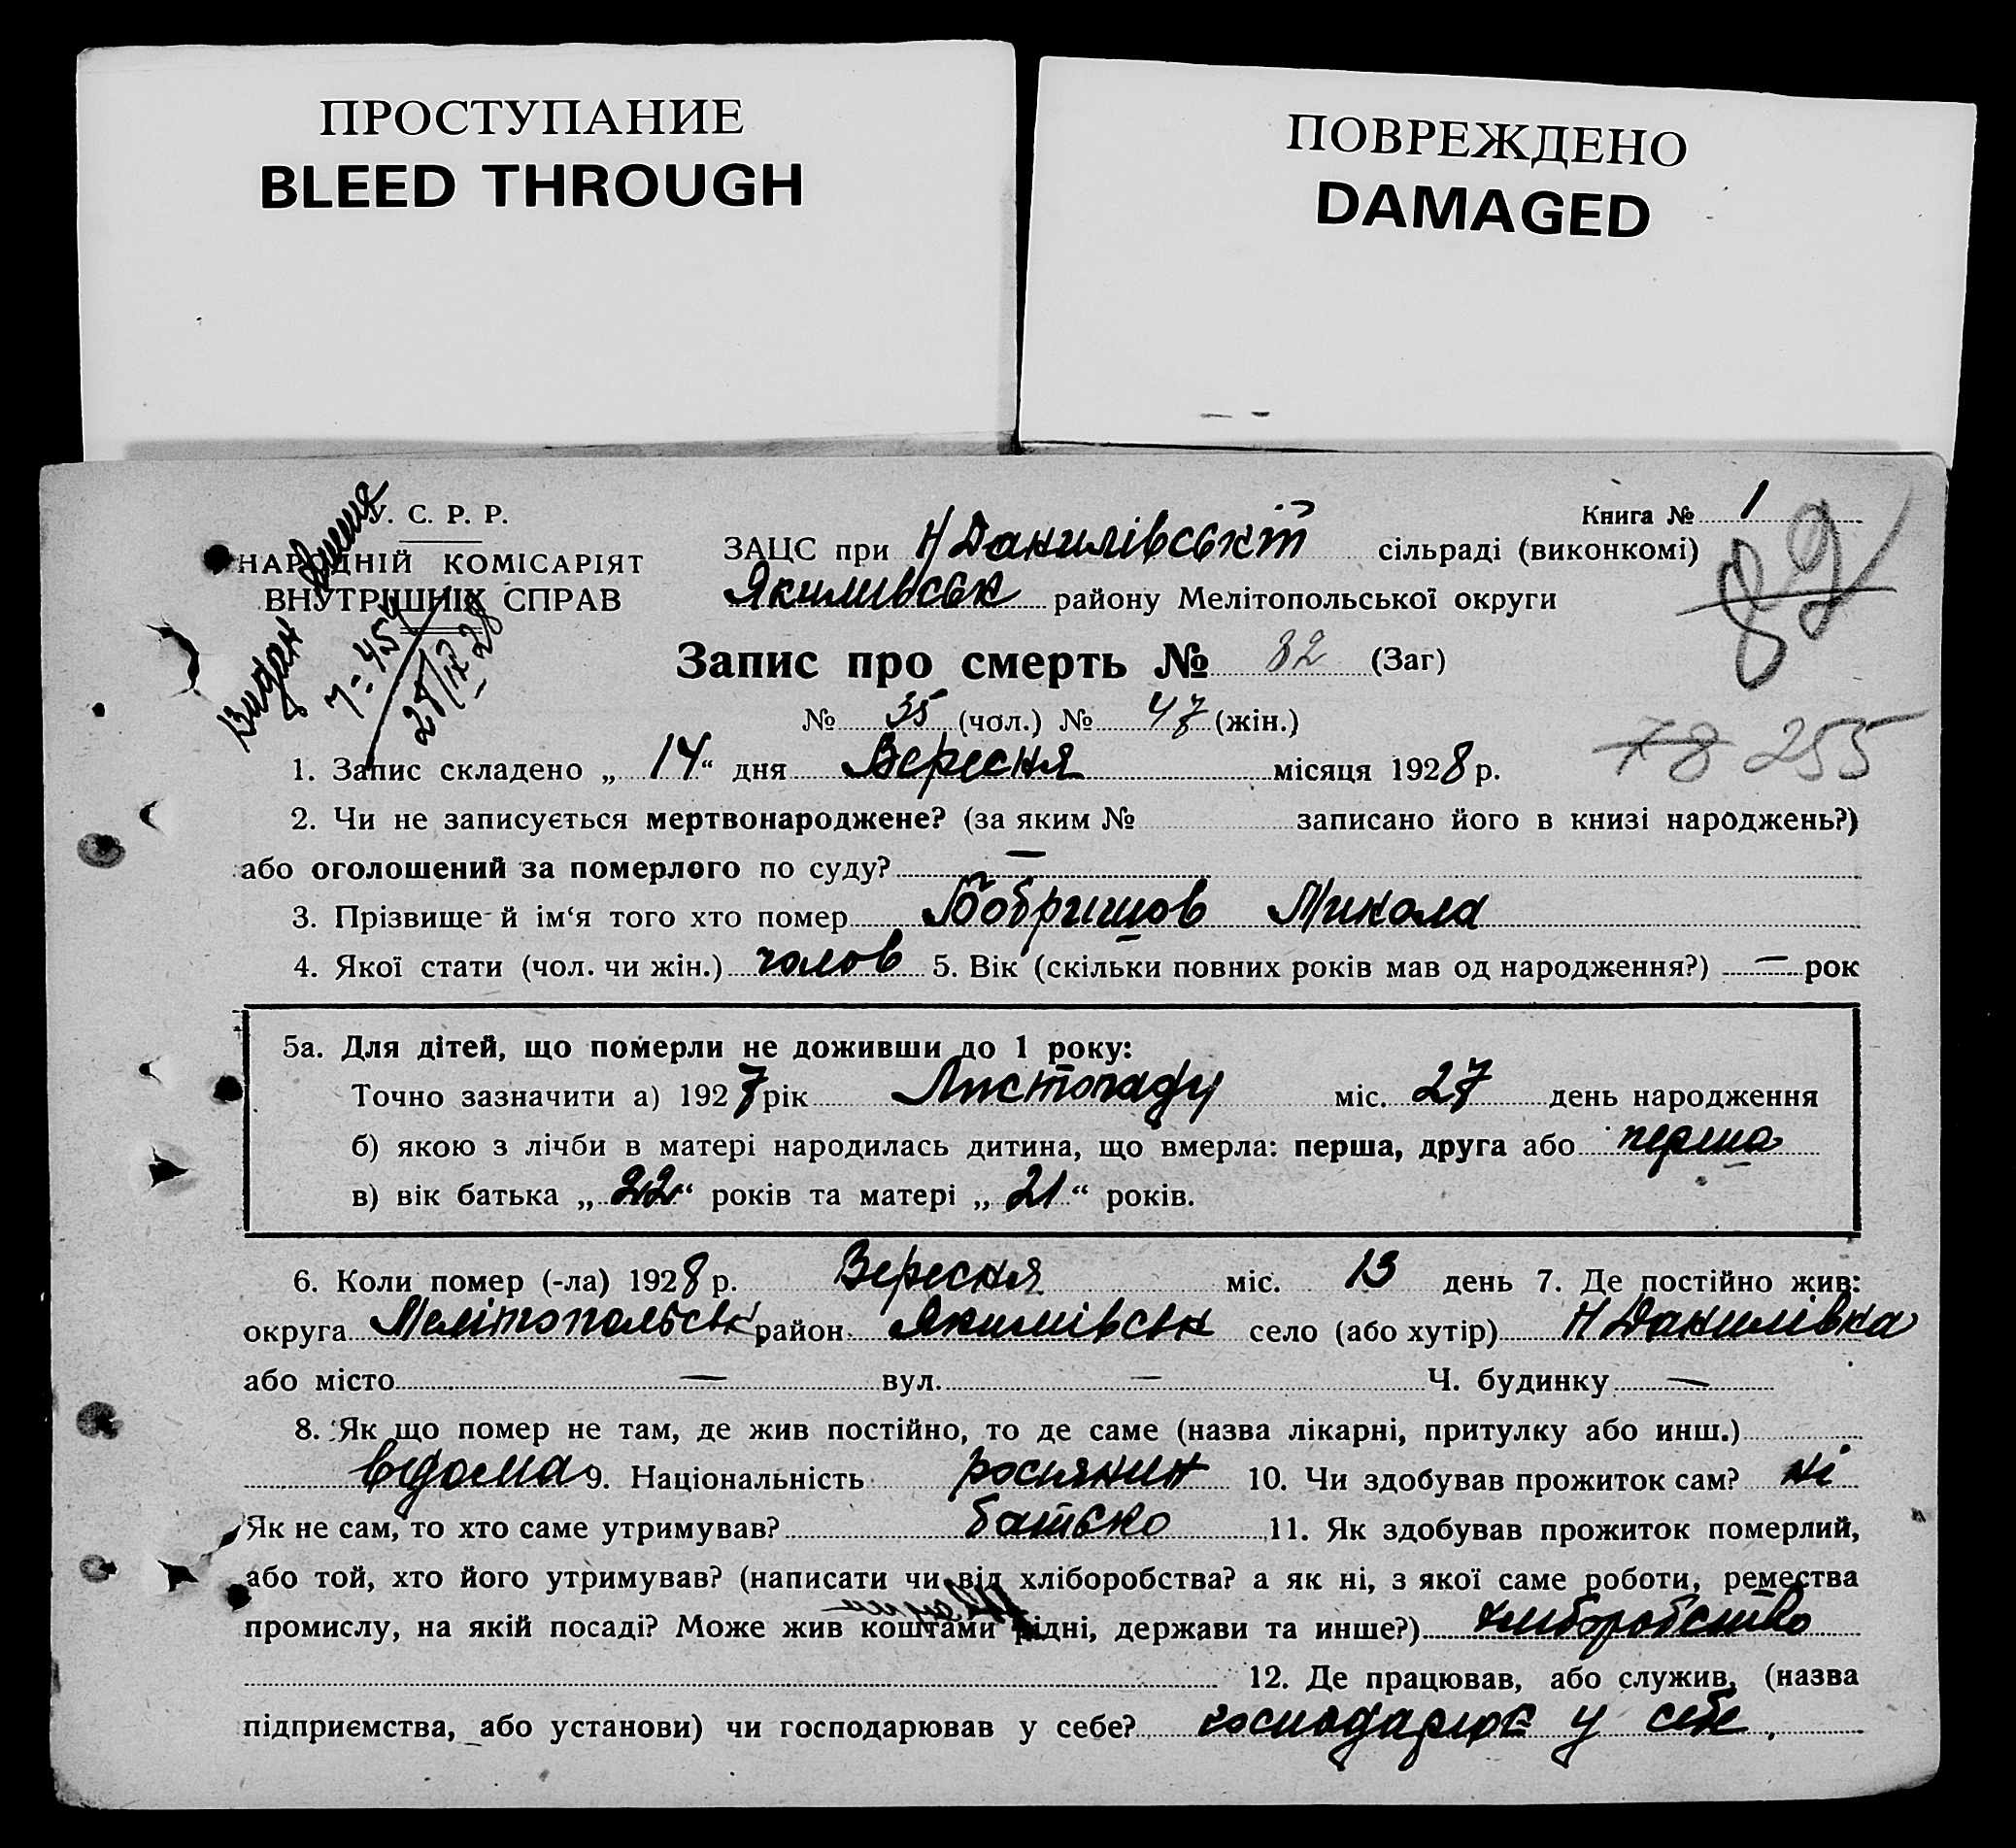 ПРОСТУПАНИЕ
BLEED THROUGH
ПОВРЕЖДЕНО
DAMAGED
У. С. Р. Р.
НАРОДНІЙ КОМІСАРІЯТ
ВНУТРІШНІХ СПРАВ
Видан
Книга № 1
ЗАЦС при Н Данилівській сільраді (виконкомі)
Якимівськ району Мелітопольської округи
82
Запис про смерть № 82 (Заг)
№ 35 (чол.) № 47 (жін.)
78 255
1. Запис складено „ 14 “ дня Вересня місяця 1928 р.
2. Чи не записується мертвонароджене? (за яким № записано його в книзі народжень?)
або оголошений за померлого по суду? —
3. Прізвище й ім‘я того хто помер Бобришов Микола
4. Якої стати (чол. чи жін.) чолов 5. Вік (скільки повних років мав од народження?) — рок
5а. Для дітей, що померли не доживши до 1 року:
Точно зазначити а) 1927 рік Листопаду міс. 27 день народження
б) якою з лічби в матері народилась дитина, що вмерла: перша, друга або перша
в) вік батька „ 22 “ років та матері „ 21 “ років.
6. Коли помер (-ла) 1928 р. Вересня міс. 13 день 7. Де постійно жив:
округа Мелітопольськ район Якимівськ село (або хутір) Н Данилівка
або місто — вул. — Ч. будинку —
8. Як що помер не там, де жив постійно, то де саме (назва лікарні, притулку або инш.)
вдома 9. Національність росіянин 10. Чи здобував прожиток сам? ні
Як не сам, то хто саме утримував? батько 11. Як здобував прожиток померлий,
або той, хто його утримував? (написати чи від хліборобства? а як ні, з якої саме роботи, ремества
промислу, на якій посаді? Може жив коштами рідні, держави та инше?) хліборобство
12. Де працював, або служив, (назва
підприємства, або установи) чи господарював у себе? господарює у себе.